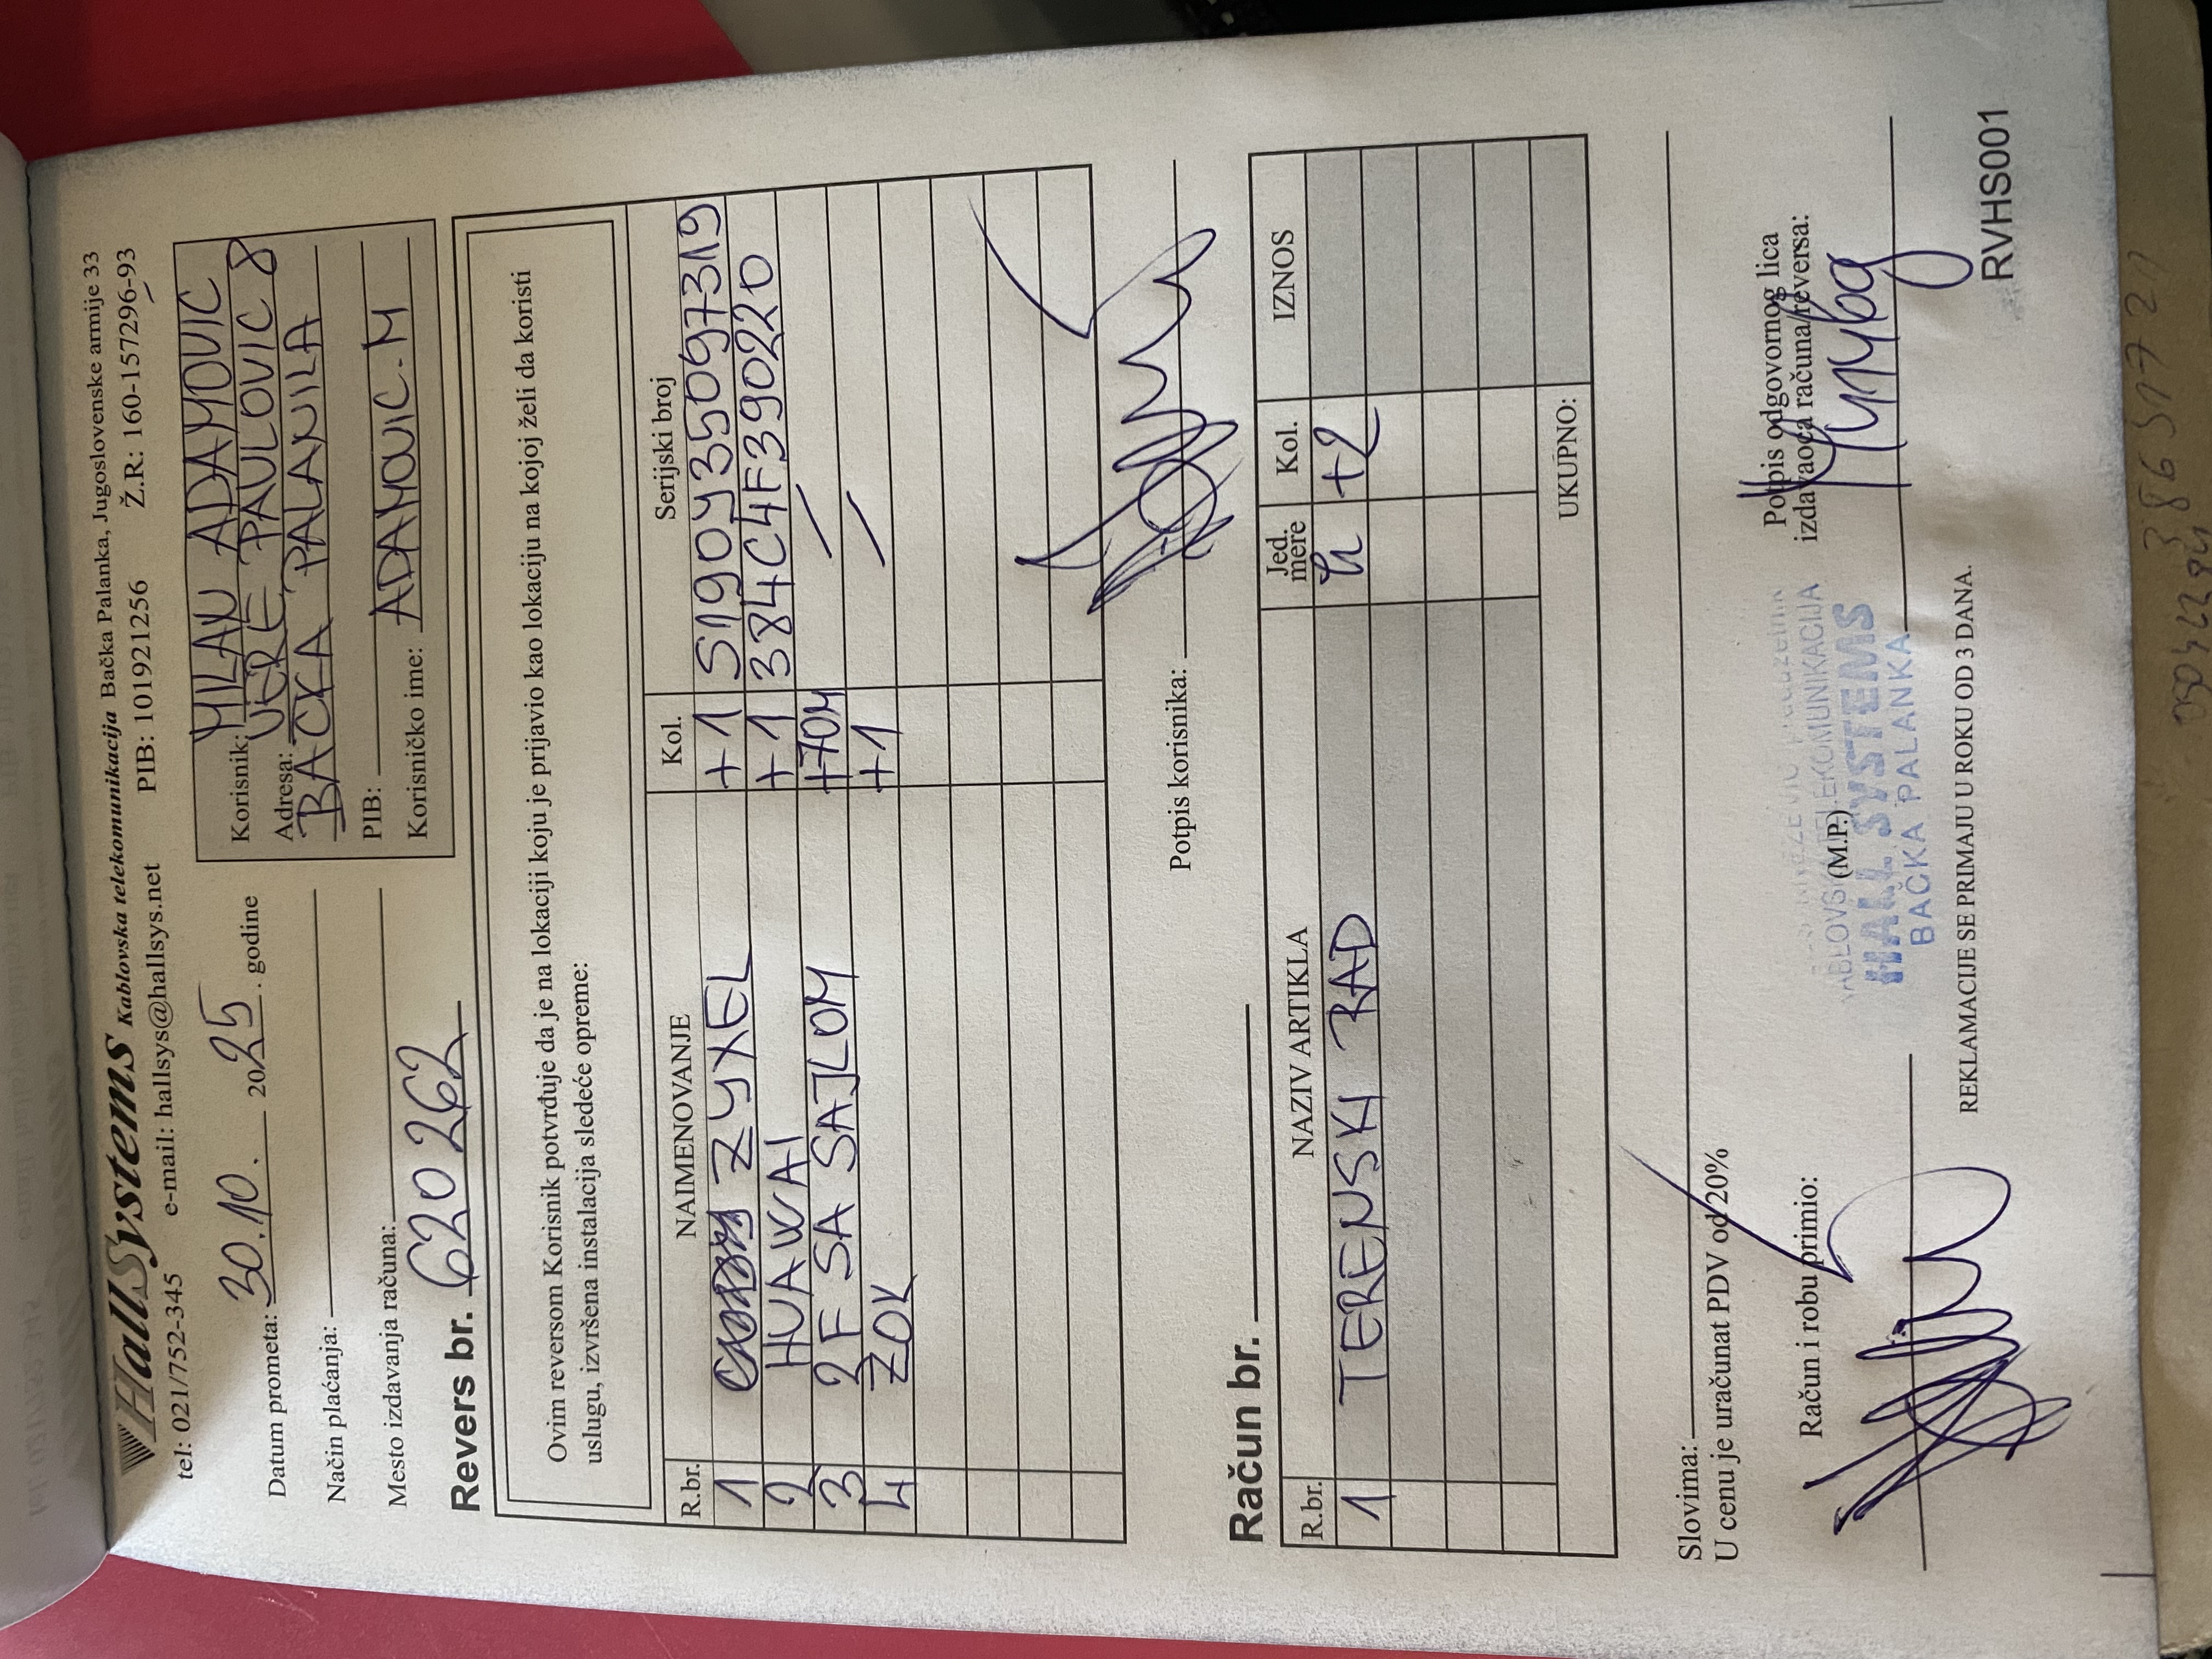 HallSystems Kablovska telekomunikacija Bačka Palanka, Jugoslovenske armije 33
tel: 021/752-345 e-mail: hallsys@hallsys.net PIB: 101921256 Ž.R: 160-157296-93
Datum prometa: 30.10. 2025. godine
Način plaćanja:
Mesto izdavanja računa:
Revers br. 620262
Korisnik: MILAN ADAMOVIC
Adresa: VERE PAULOVIC 8
BACKA PALANILA
PIB:
Korisničko ime: ADAMOVIC.M
Ovim reversom Korisnik potvrđuje da je na lokaciji koju je prijavio kao lokaciju na kojoj želi da koristi
uslugu, izvršena instalacija sledeće opreme:
R.br. NAIMENOVANJE Kol. Serijski broj
1 ZYXEL +1 S190Y35097319
2 HUAWAI +1 384C4F390220
3 2F SA SAJLOM +70M /
4 ZOK +1 /
Potpis korisnika:
Račun br.
R.br. NAZIV ARTIKLA Jed. mere Kol. IZNOS
1 TERENSKI RAD h +2
UKUPNO:
Slovima:
U cenu je uračunat PDV od 20%
Račun i robu primio:
(M.P.)
KABLOVSKA TELEKOMUNIKACIJA
HALL SYSTEMS
BAČKA PALANKA
Potpis odgovornog lica
izdavaoca računa/reversa:
REKLAMACIJE SE PRIMAJU U ROKU OD 3 DANA.
RVHS001